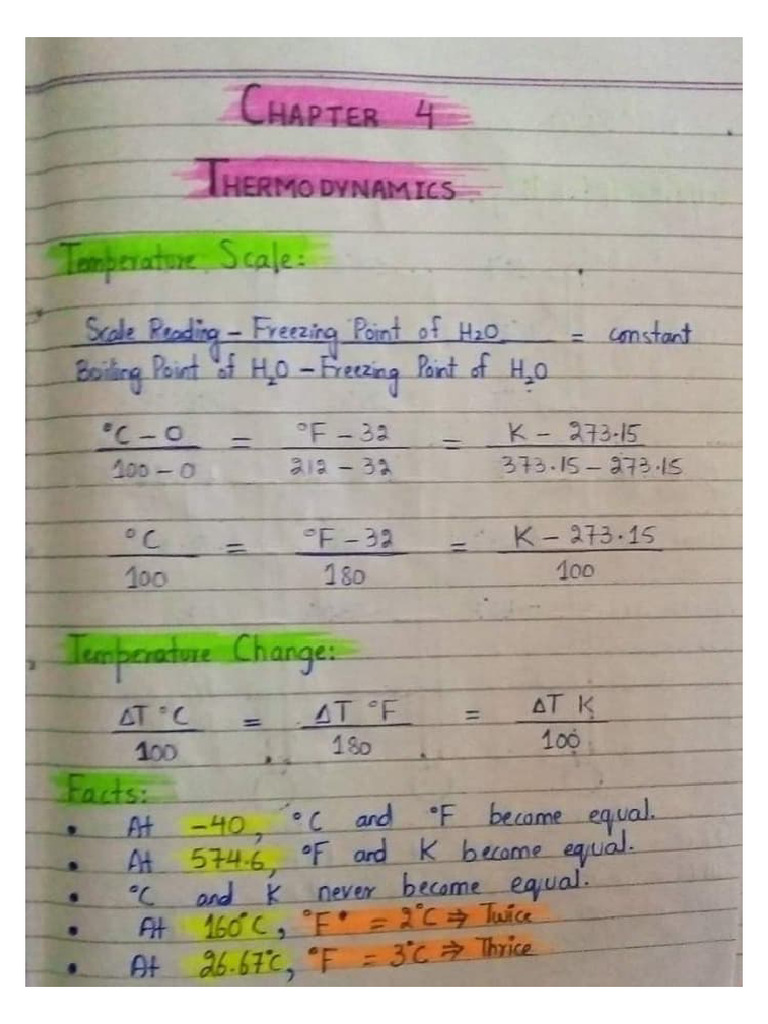 CHAPTER 4
THERMODYNAMICS
Temperature Scale:
Scale Reading – Freezing Point of H2O = constant
Boiling Point of H₂O – Freezing Point of H₂O
°C – 0 = °F – 32 = K – 273.15
100 – 0 212 – 32 373.15 – 273.15
°C = °F – 32 = K – 273.15
100 180 100
Temperature Change:
ΔT °C = ΔT °F = ΔT K
100 180 100
Facts:
• At –40, °C and °F become equal.
• At 574.6, °F and K become equal.
• °C and K never become equal.
• At 160°C, °F = 2°C ⇒ Twice
• At 26.67°C, °F = 3°C ⇒ Thrice